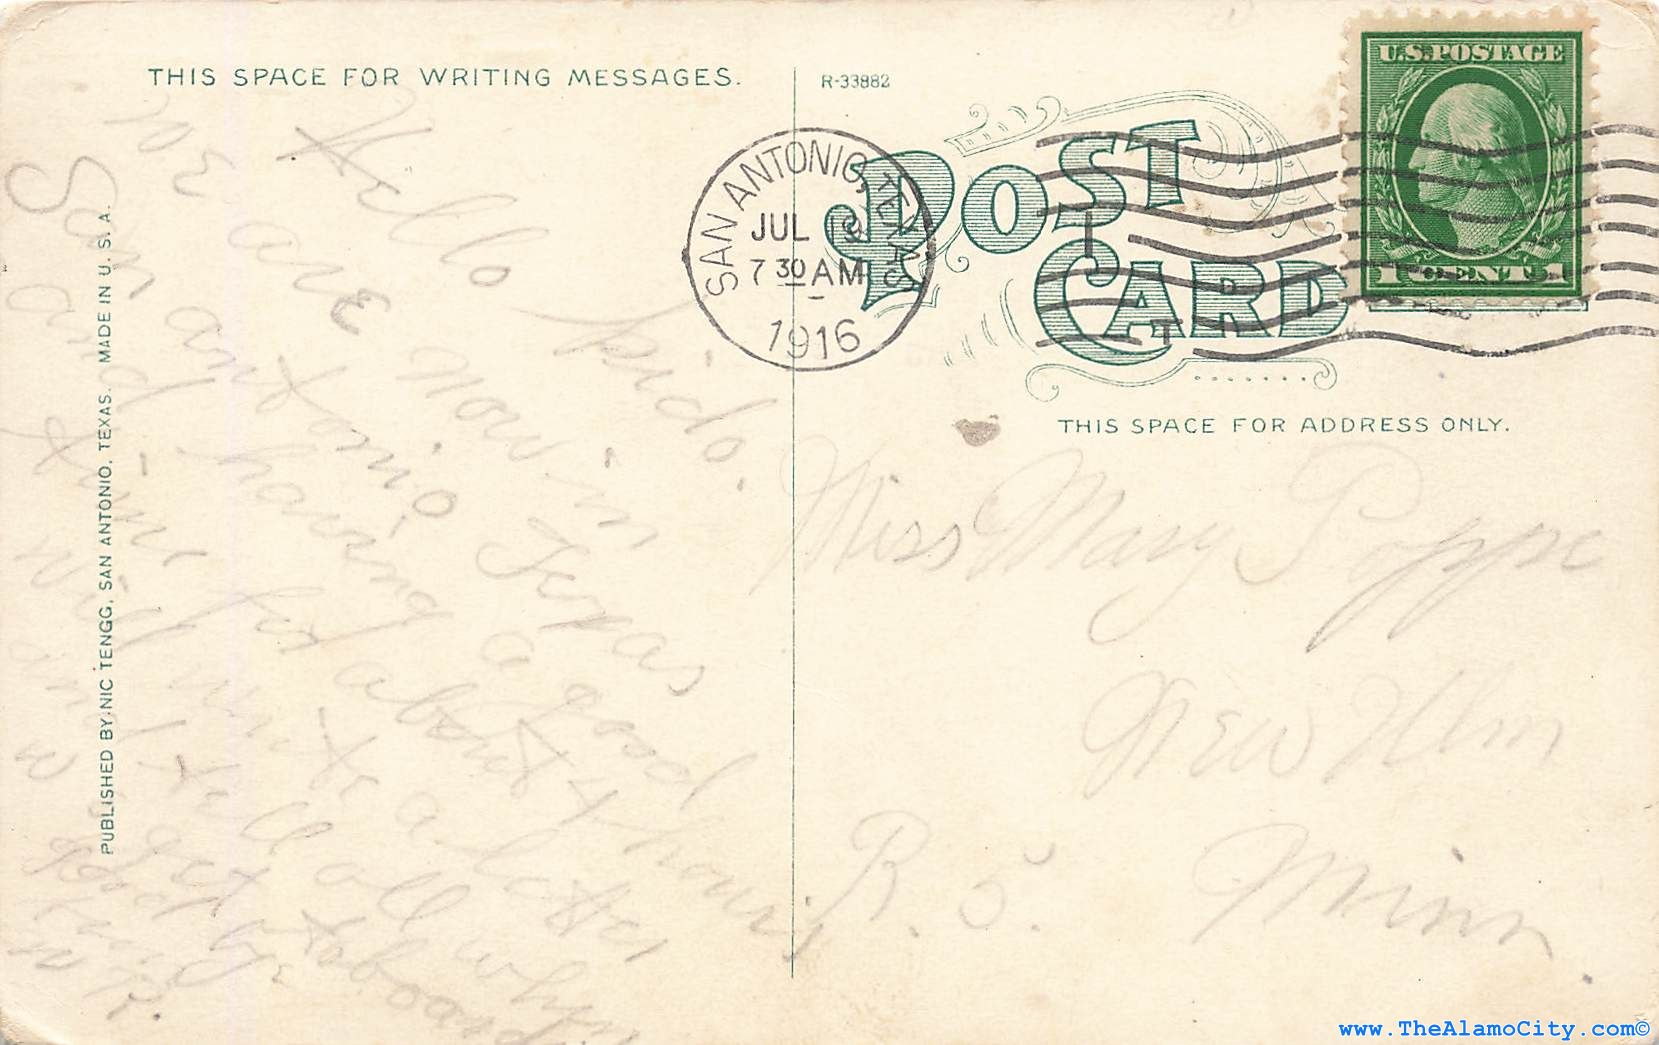 THIS SPACE FOR WRITING MESSAGES.
R-33882
POST
CARD
U.S. POSTAGE
1 CENT 1
SAN ANTONIO, TEXAS
JUL
7 30 AM
1916
THIS SPACE FOR ADDRESS ONLY.
PUBLISHED BY NIC TENGG, SAN ANTONIO, TEXAS. MADE IN U. S. A.
Hello kido.
We are now in
San antonio Texas
and having a good
time for about 4 hours
will write a letter
and tell all when
get
good by
Miss Mary Poppe
New Ulm
R. 5. Minn.
www.TheAlamoCity.com©